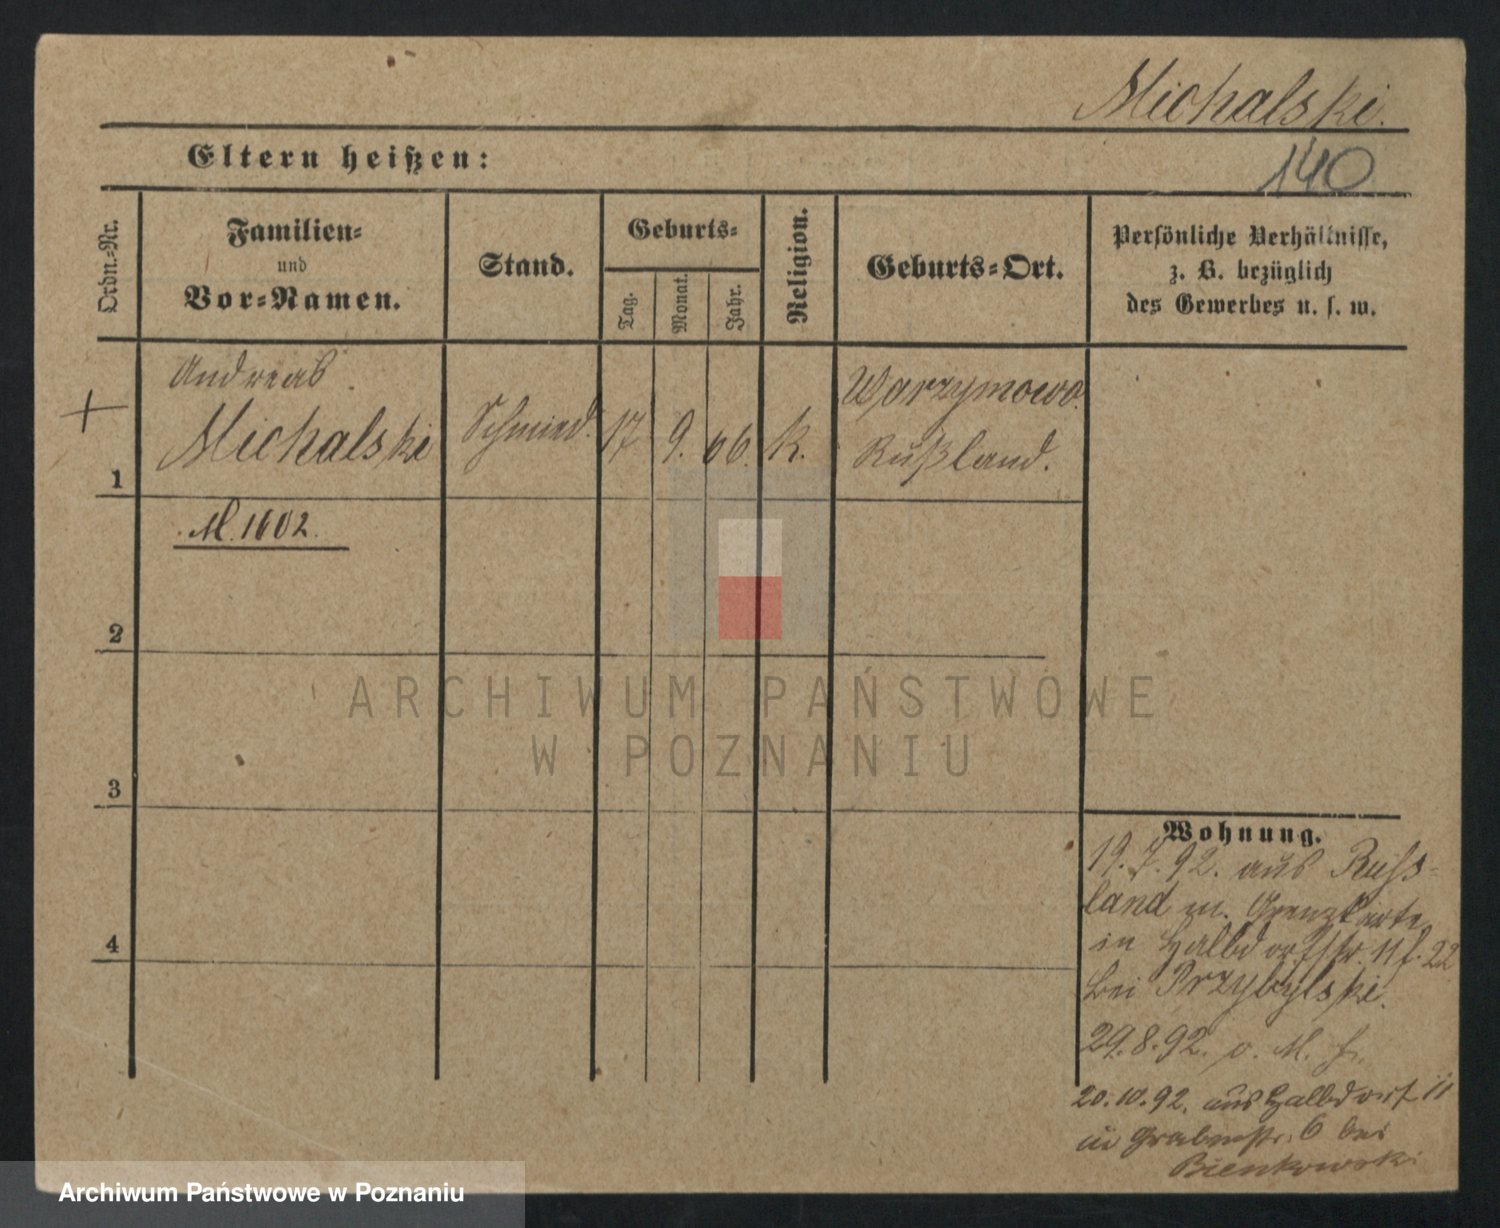 Michalski.
Eltern heißen:
140
Ordn.-Nr.
Familien-
und
Vor-Namen.
Stand.
Geburts-
Tag.
Monat.
Jahr.
Religion.
Geburts-Ort.
Persönliche Verhältnisse,
z. B. bezüglich
des Gewerbes u. s. w.
1
Andreas
Michalski
Schmied.
17
9.
66.
k.
Warzymowo.
Rußland.
M. 1602.
2
3
4
ARCHIWUM PAŃSTWOWE
W POZNANIU
Wohnung.
19.7.92. aus Russ-
land m. Grenzkarte
in Halbdorfstr. 11 22
bei Przybylski.
29.8.92. o. M.
20.10.92. aus Halbdorf 11
in Grabenstr. 6 bei
Bienkowski
Archiwum Państwowe w Poznaniu